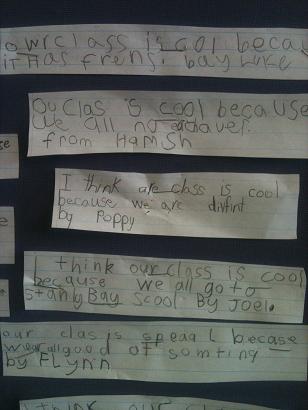 owr class is col becas
it has frens. bay Luke
Ou clas is cool because
we all no eachaver.
from Hamish
I think are class is cool
because we are difint
by Poppy
I think our class is cool
because we all go to
Stanly Bay scool. By Joel.
our clas is speaal becase
we are all good at somting
by FLynn
I think our